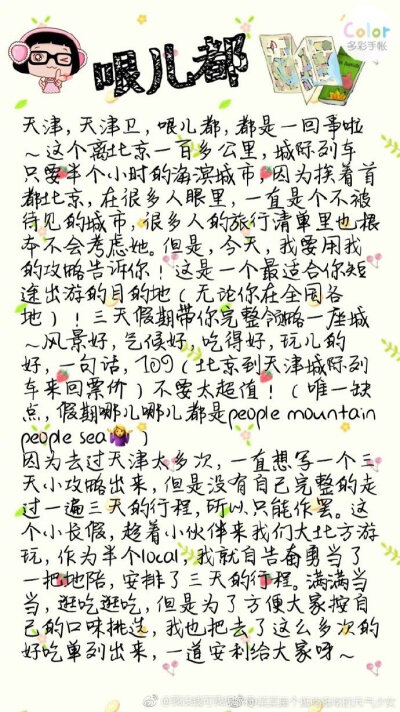 Color
多彩手帐
哏儿都
天津，天津卫，哏儿都，都是一回事啦
～这个离北京一百多公里，城际列车
只要半个小时的海滨城市，因为挨着首
都北京，在很多人眼里，一直是个不被
待见的城市，很多人的旅行清单里也根
本不会考虑她。但是，今天，我要用我
的攻略告诉你！这是一个最适合你短
途出游的目的地（无论你在全国各
地）！三天假期带你完整领略一座城
～风景好，气候好，吃得好，玩儿的
好，一句话，109（北京到天津城际列
车来回票价）不要太超值！（唯一缺
点，假期哪儿哪儿都是people mountain
people sea🤷‍♀️）
因为去过天津太多次，一直想写一个三
天小攻略出来，但是没有自己完整的走
过一遍三天的行程，所以只能作罢。这
个小长假，趁着小伙伴来我们大北方游
玩，作为半个local，我就自告奋勇当了
一把地陪，安排了三天的行程。满满当
当，逛吃逛吃，但是为了方便大家按自
己的口味挑选，我也把去了这么多次的
好吃单列出来，一道安利给大家呀～